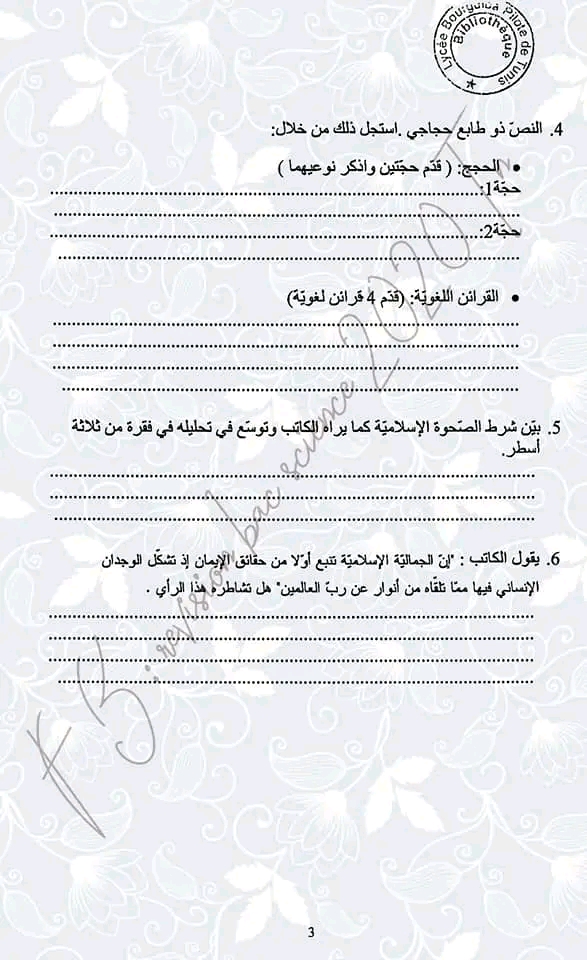 Lycée Bourguiba Pilote de Tunis
Bibliothèque
4. النصّ ذو طابع حجاجي .استجل ذلك من خلال:
• الحجج: ( قدّم حجّتين واذكر نوعيهما )
حجّة1:
حجّة2:
• القرائن اللغويّة: (قدّم 4 قرائن لغويّة)
5. بيّن شرط الصّحوة الإسلاميّة كما يراه الكاتب وتوسّع في تحليله في فقرة من ثلاثة
أسطر.
6. يقول الكاتب : "إنّ الجماليّة الإسلاميّة تنبع أوّلا من حقائق الإيمان إذ تشكّل الوجدان
الإنساني فيها ممّا تلقّاه من أنوار عن ربّ العالمين" هل تشاطره هذا الرأي .
FB: revision bac science 2020
3